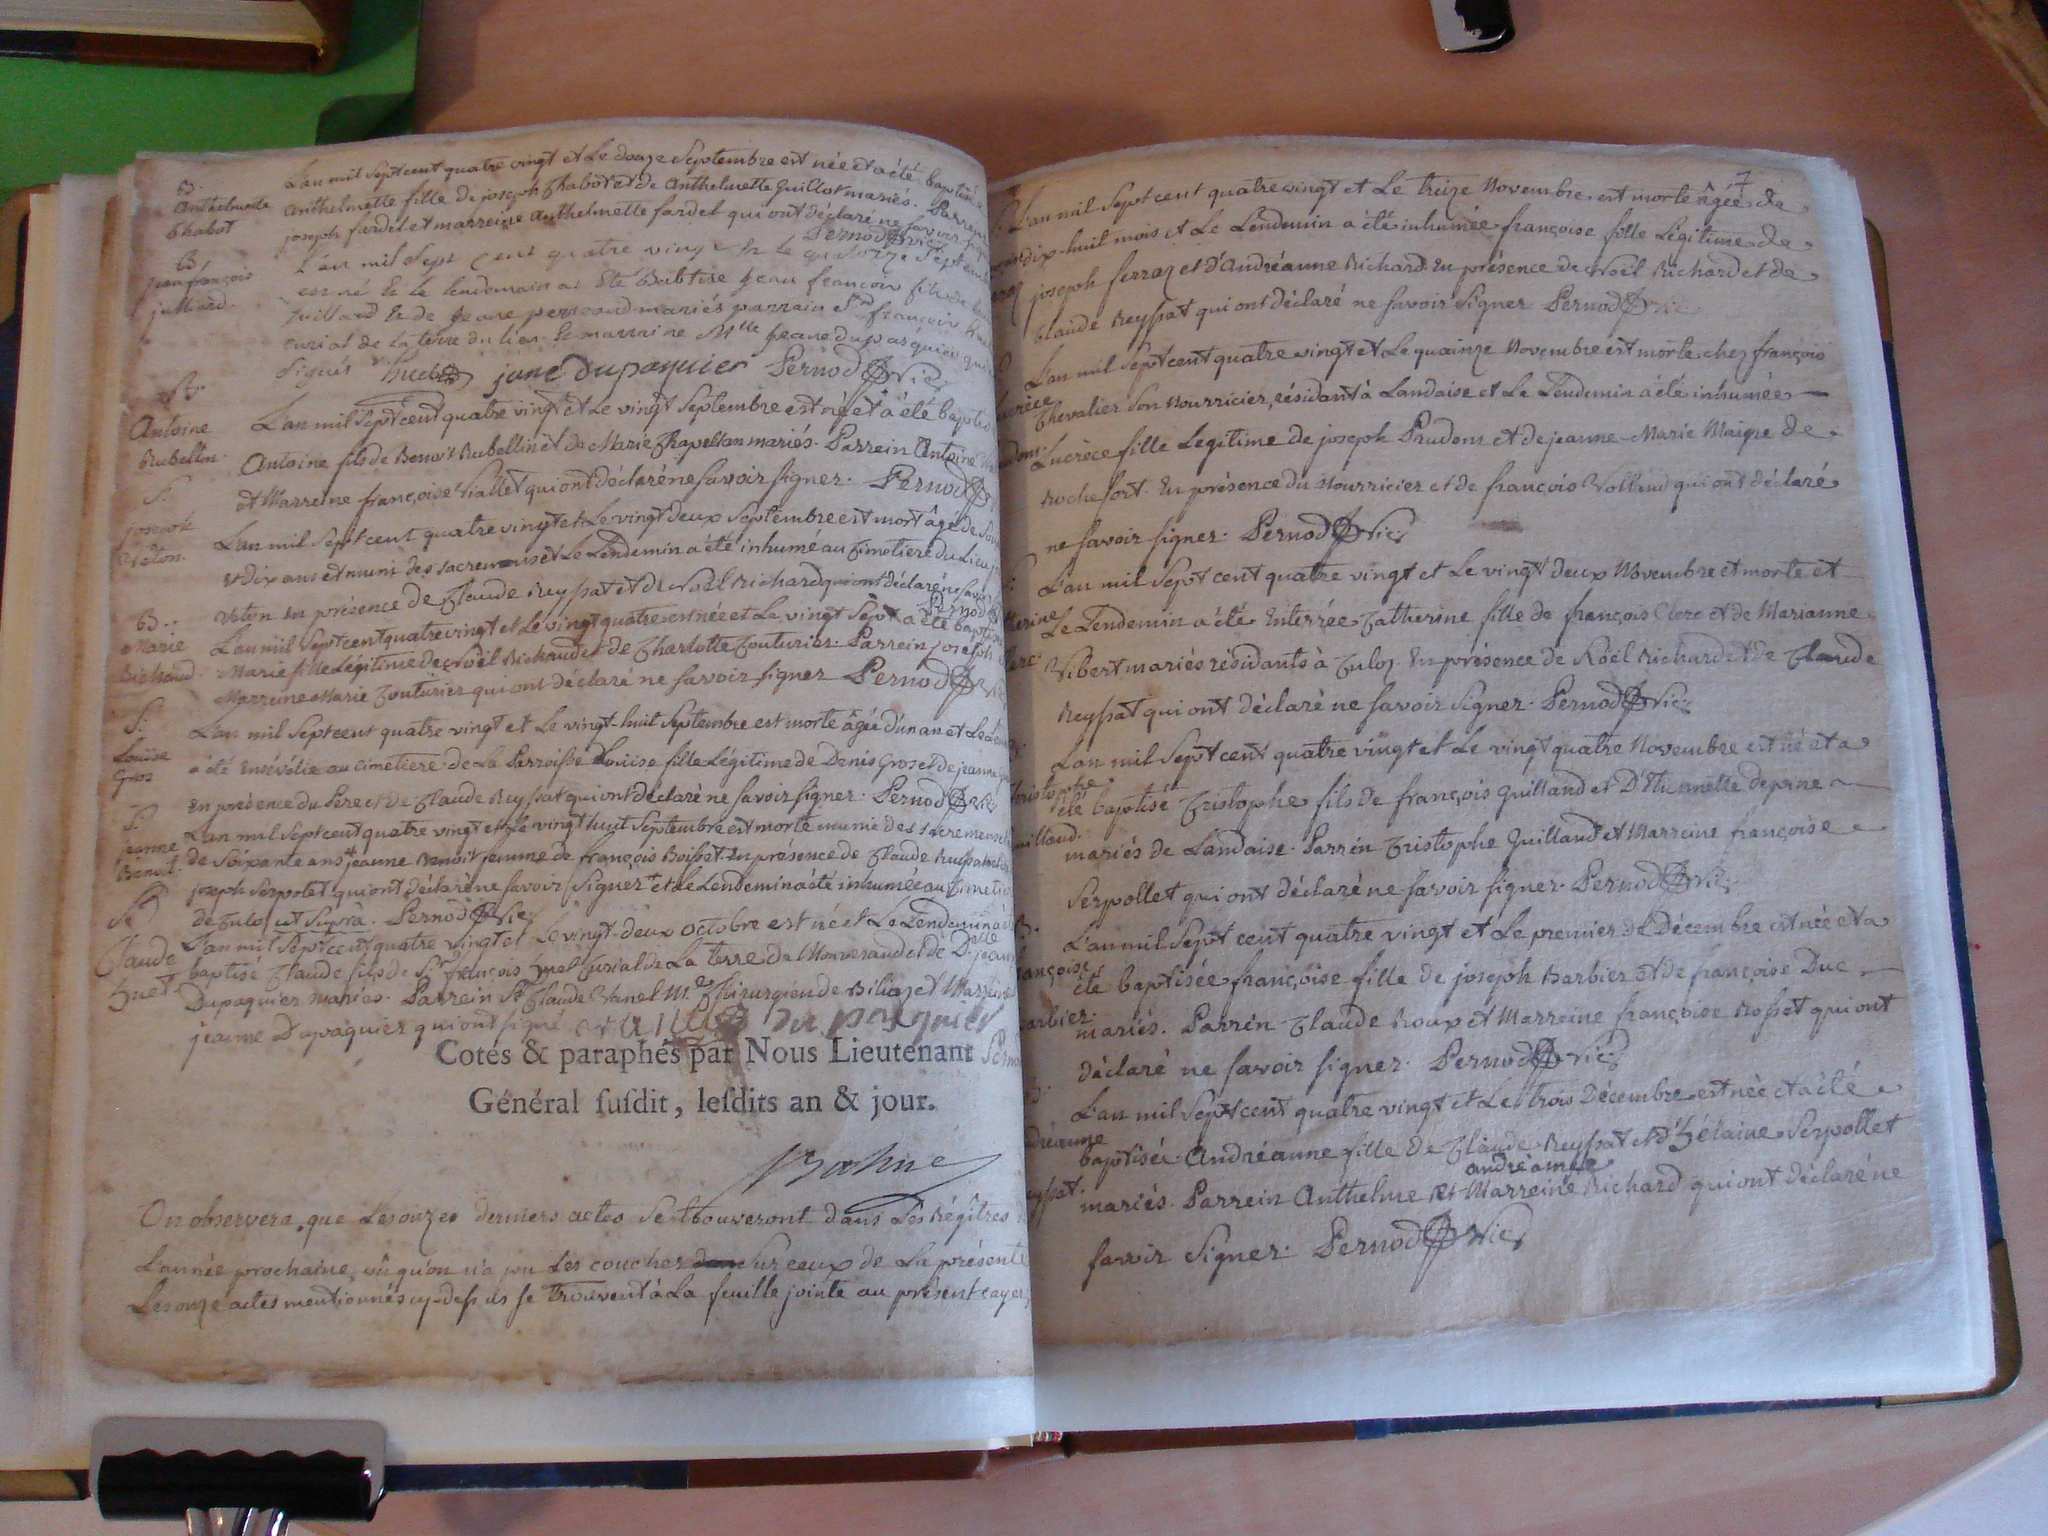 B.
Anthelmette
Chabot
L'an mil Sept cent quatre vingt et Le douze Septembre est née et a été baptisée
Anthelmette fille de joseph Chabot et de Anthelmette Guillot mariés. Parrein
joseph fardel et marreine Anthelmette fardel qui ont déclaré ne savoir signer
Pernod Vic
B.
jean françois
juilliard
L'an mil Sept cent quatre vingt & le quatorze Septembre
est né & le lendemain a Eté Babtisé jean françois fils de
juillard & de jeane perroud mariés parrain Sr françois
curial de la terre du lieu & marraine Mlle jeane dupaquier qui
signés huet jane dupaquier Pernod Vic
B.
Antoine
Rubellin.
L'an mil Sept cent quatre vingt et Le vingt Septembre est né et a été baptisé
Antoine fils de Benoit Rubellin et de Marie Chapellan mariés. Parrein Antoine
et Marreine françoise Viallet qui ont déclaré ne savoir signer. Pernod
S.
joseph
Veton.
L'an mil Sept cent quatre vingt et Le vingt deux Septembre est mort âgé de
et dix ans et muni des sacremens et Le Lendemin a été inhumé au Cimetiere du Lieu
Veton en présence de Claude Reyssat et de Noël Richard qui ont déclaré ne savoir
Pernod
B.
Marie
Richaud.
L'an mil Sept cent quatre vingt et Le vingt quatre est née et Le vingt Sept a été baptisée
Marie fille Légitime de Noël Richaud et de Charlotte Couturier. Parrein joseph
Marreine Marie Couturier qui ont déclaré ne savoir signer Pernod Vic
S.
Louise
Gros
L'an mil Sept cent quatre vingt et Le vingt-huit Septembre est morte âgée d'un an et Le
a été ensévélie au cimetiere de La Parroisse Louise fille Légitime de Denis Gros et de jeanne
En présence du Pere et de Claude Reyssat qui ont déclaré ne savoir signer. Pernod Vic
S.
jeanne
Benoit.
L'an mil Sept cent quatre vingt et Le vingt huit Septembre est morte munie des Sacremens
de Soixante ans jeanne Benoit femme de françois Boisset En présence de Claude Reyssat
joseph Serpolet qui ont déclaré ne savoir signer et Le Lendemin a été inhumée au Cimetiere
de Culo ut Suprà. Pernod Vic
Claude
huet
L'an mil Sept cent quatre vingt et Le vingt-deux Octobre est né et Le Lendemin a été
baptisé Claude fils de Sr françois huet Curial de La Terre de Montveraud et de Dlle jeanne
Dupaquier mariés. Parrein Sr Claude Vanel Me Chirurgien de Biliaz et Marreine
jeanne Dupaquier qui ont signé du paquier
Cotés & paraphés par Nous Lieutenant
Général susdit, lesdits an & jour.
On observera que Les onze derniers actes Se trouveront dans Les Régîtres
L'année prochaine, vû qu'on n'a pu Les coucher dans sur ceux de La présente
Les onze actes mentionnés cy-dessus se trouvent à La feuille jointe au présent cayer
7
L'an mil Sept cent quatre vingt et Le treize Novembre est morte âgée de
dix-huit mois et Le Lendemin a été inhumée françoise fille Légitime de
joseph ferraz et d'Andréanne Richard. En présence de Noël Richard et de
Claude Reyssat qui ont déclaré ne savoir signer Pernod Vic
L'an mil Sept cent quatre vingt et Le quainze Novembre est morte chez françois
Chevalier Son Nourricier, résidant à Landaise et Le Lendemin a été inhumée
Lucrèce fille Legitime de joseph Prudent et de jeanne-Marie Maigre de
Rochefort. En présence du Nourricier et de françois Volland qui ont déclaré
ne savoir signer. Pernod Vic
L'an mil Sept cent quatre vingt et Le vingt deux Novembre et morte et
Le Lendemin a été Enterrée Catherine fille de françois Clerc et de Marianne
Vibert mariés résidants à Culoz. En présence de Noël Richard et de Claude
Reyssat qui ont déclaré ne savoir signer. Pernod Vic
L'an mil Sept cent quatre vingt et Le vingt quatre Novembre est né et a
été baptisé Cristophe fils de françois Guilland et D'Thiennette Deprne
mariés de Landaise. Parrin Cristophe Guilland et Marreine françoise
Serpollet qui ont déclaré ne savoir signer. Pernod Vic
L'an mil Sept cent quatre vingt et Le premier de Décembre est née et a
été baptisée françoise fille de joseph Barbier et de françoise Duc
mariés. Parrin Claude Roux et Marreine françoise Rosset qui ont
déclaré ne savoir signer. Pernod Vic
L'an mil Sept cent quatre vingt et Le trois Décembre est née et a été
baptisée Andréanne fille de Claude Reyssat et d'hélaine Serpollet
andréanne
mariés. Parrein Anthelme et Marreine Richard qui ont déclaré ne
savoir signer. Pernod Vic